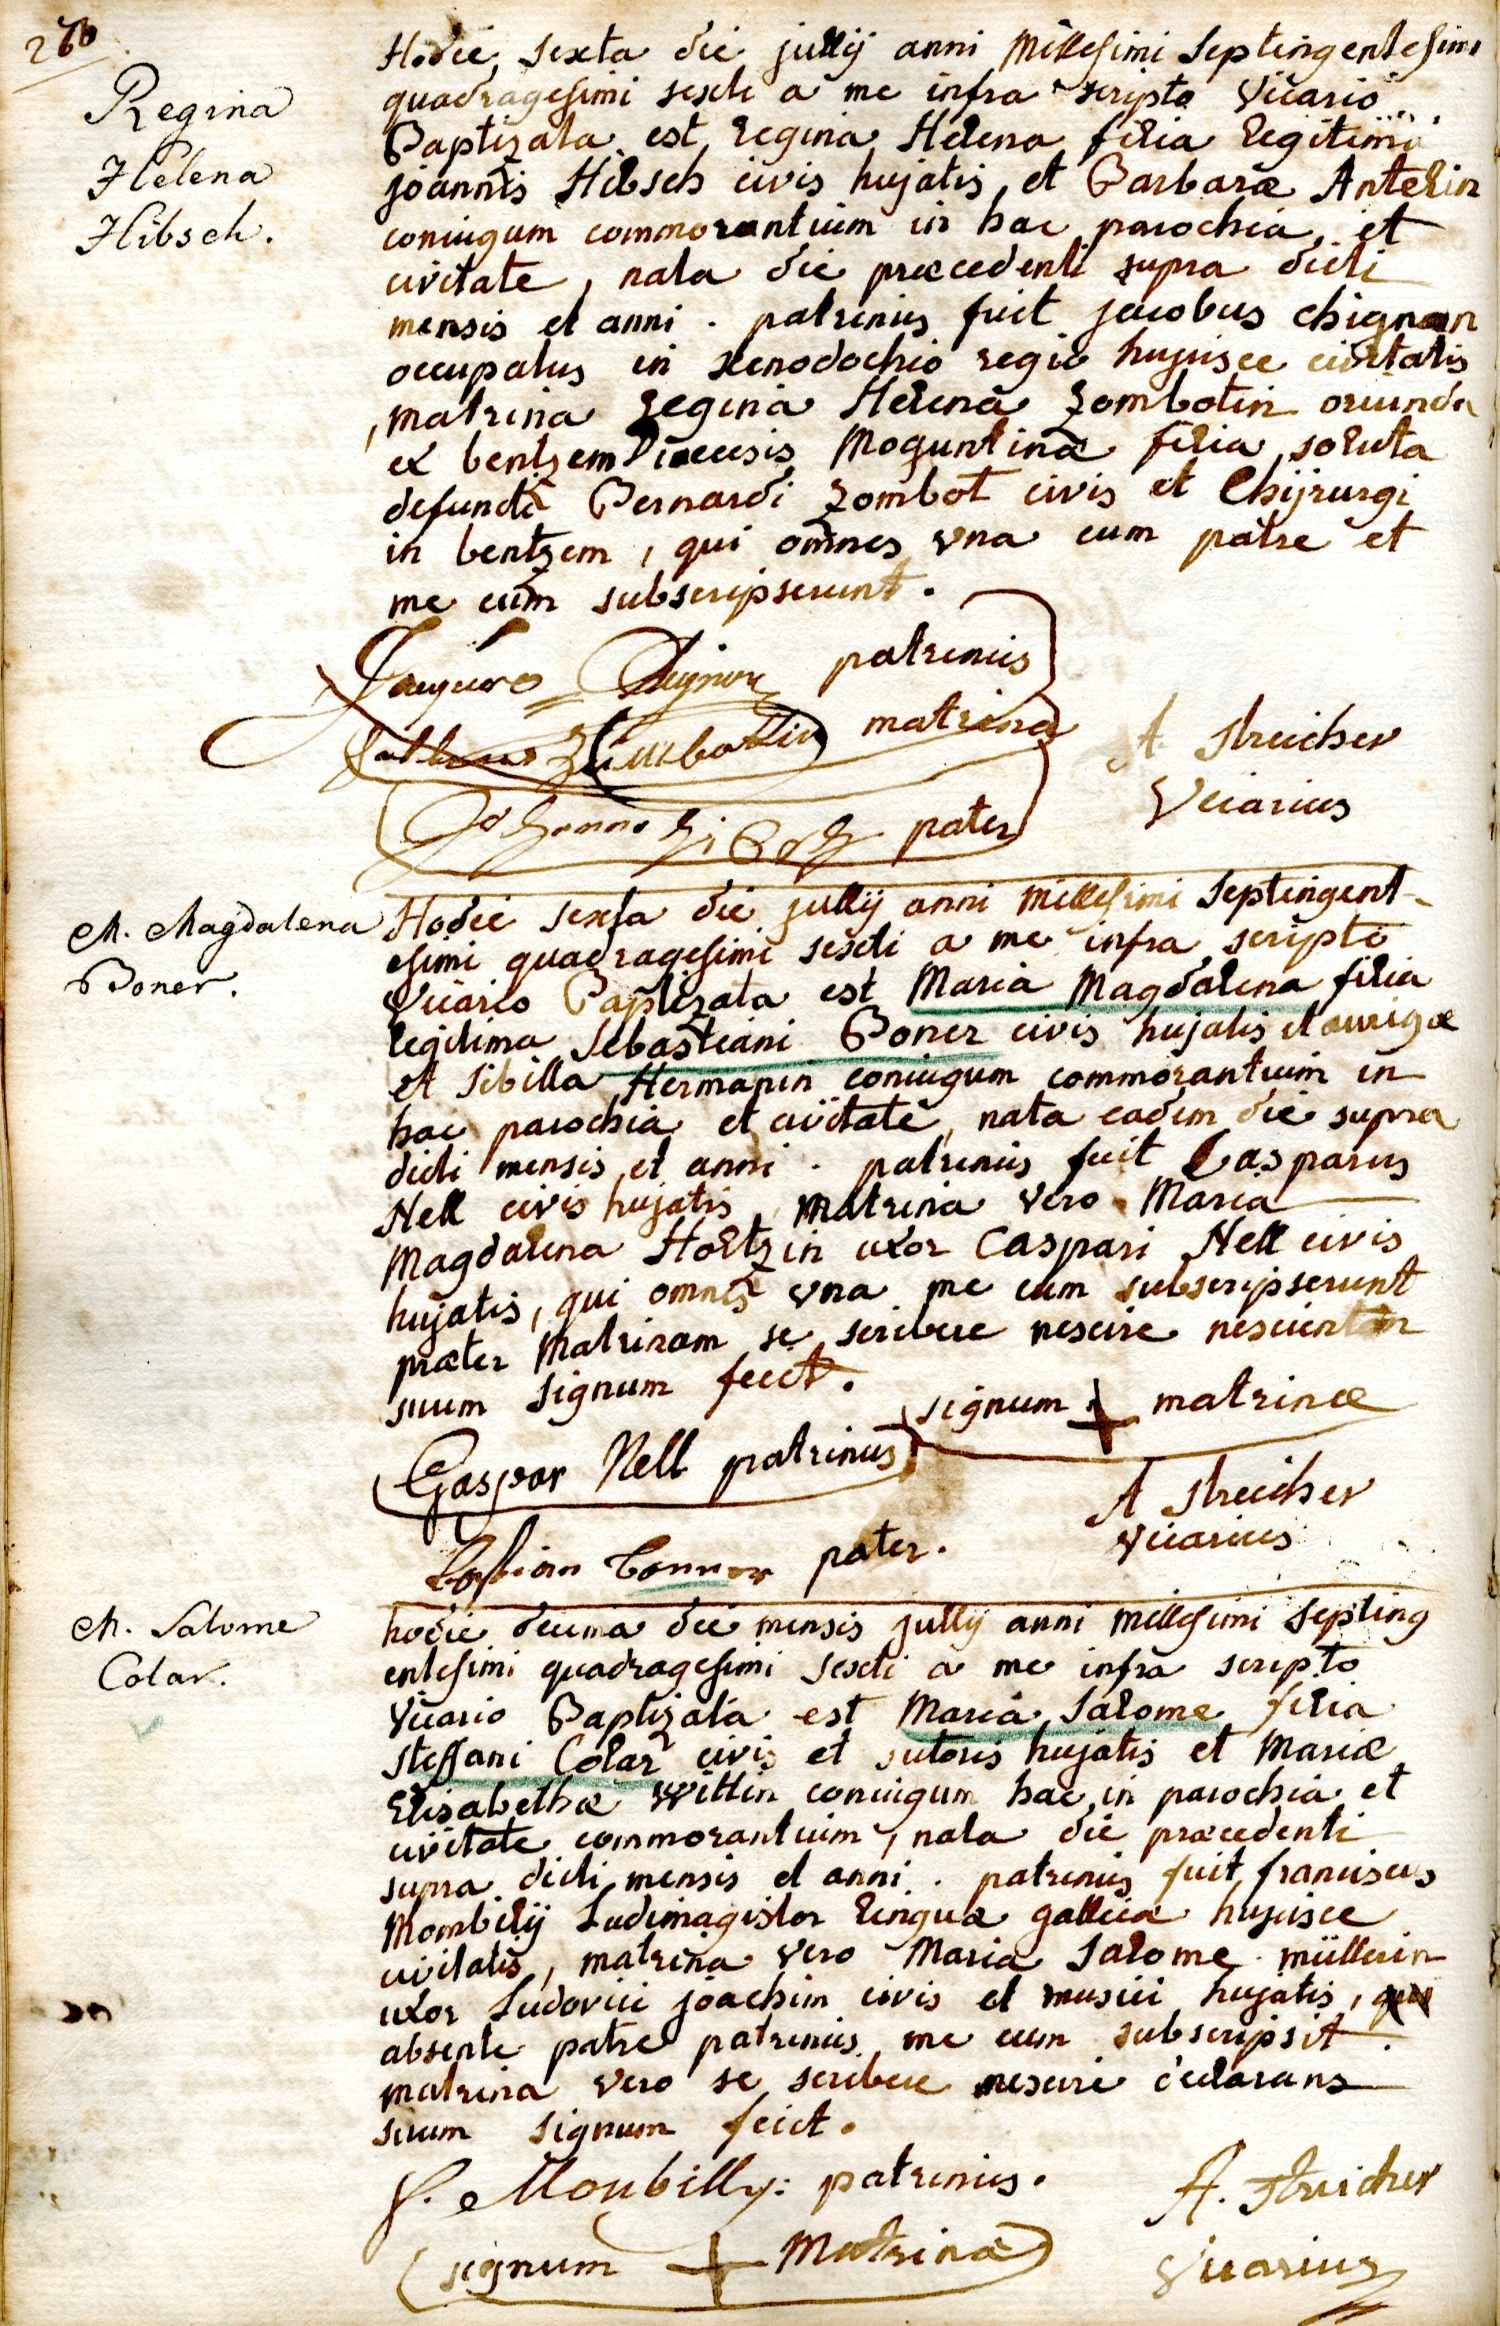 276
Regina
Helena
Hibsch.
Hodie sexta die jullij anni Millesimi Septingentesimi
quadragesimi sexti a me infra scripto Vicario
Baptizata est Regina Helena filia legitima
joannis Hibsch civis hujatis, et Barbaræ Anterin
coniugum commorantium in hac parochia, et
civitate, nata die præcedenti supra dicti
mensis et anni. patrinus fuit jacobus chignan
occupatus in xenodochio regio hujusce civitatis
, matrina Regina Helena Zombotin oriunda
ex bentzem Diœcesis Moguntinæ filia soluta
defuncti Bernardi Zombot civis et Chijrurgi
in bentzem, qui omnes una cum patre et
me cum subscripserunt.
patrinus
matrina
pater
A. Streicher
Vicarius
M. Magdalena
Boner.
Hodie sexta die jullij anni Millesimi Septingent-
esimi quadragesimi sexti a me infra scripto
Vicario Baptizata est Maria Magdalena filia
legitima Sebastiani Boner civis hujatis et aurigæ
et Sibilla Hermanin coniugum commorantium in
hac parochia et civitate, nata eadem die supra
dicti mensis et anni. patrinus fuit Casparus
Nell civis hujatis, Matrina vero Maria
Magdalena Holtzin uxor Caspari Nell civis
hujatis, qui omnes una me cum subscripserunt
præter Matrinam se scribere nescire
suum signum fecit.
signum + matrinæ
Caspar Nell patrinus
A Streicher
Vicarius
Bastian Bonner pater.
M. Salome
Colar.
hodie decima die mensis jullij anni millesimi Septing
entesimi quadragesimi sexti a me infra scripto
Vicario Baptizata est Maria Salome filia
Steffani Colar civis et sutoris hujatis et Mariæ
Elisabethæ Wittin coniugum hac in parochia et
civitate commorantium, nata die præcedenti
supra dicti mensis et anni. patrinus fuit franciscus
Mombilij Ludimagister linguæ gallicæ hujusce
civitatis, matrina vero Maria Salome müllerin
uxor Ludovici joachim civis et musici hujatis,
absente patre patrinus me cum subscripsit.
matrina vero se scribere nescire declarans
suum signum fecit.
f. Monbilly: patrinus.
A. Streicher
signum + Matrinæ
Vicarius